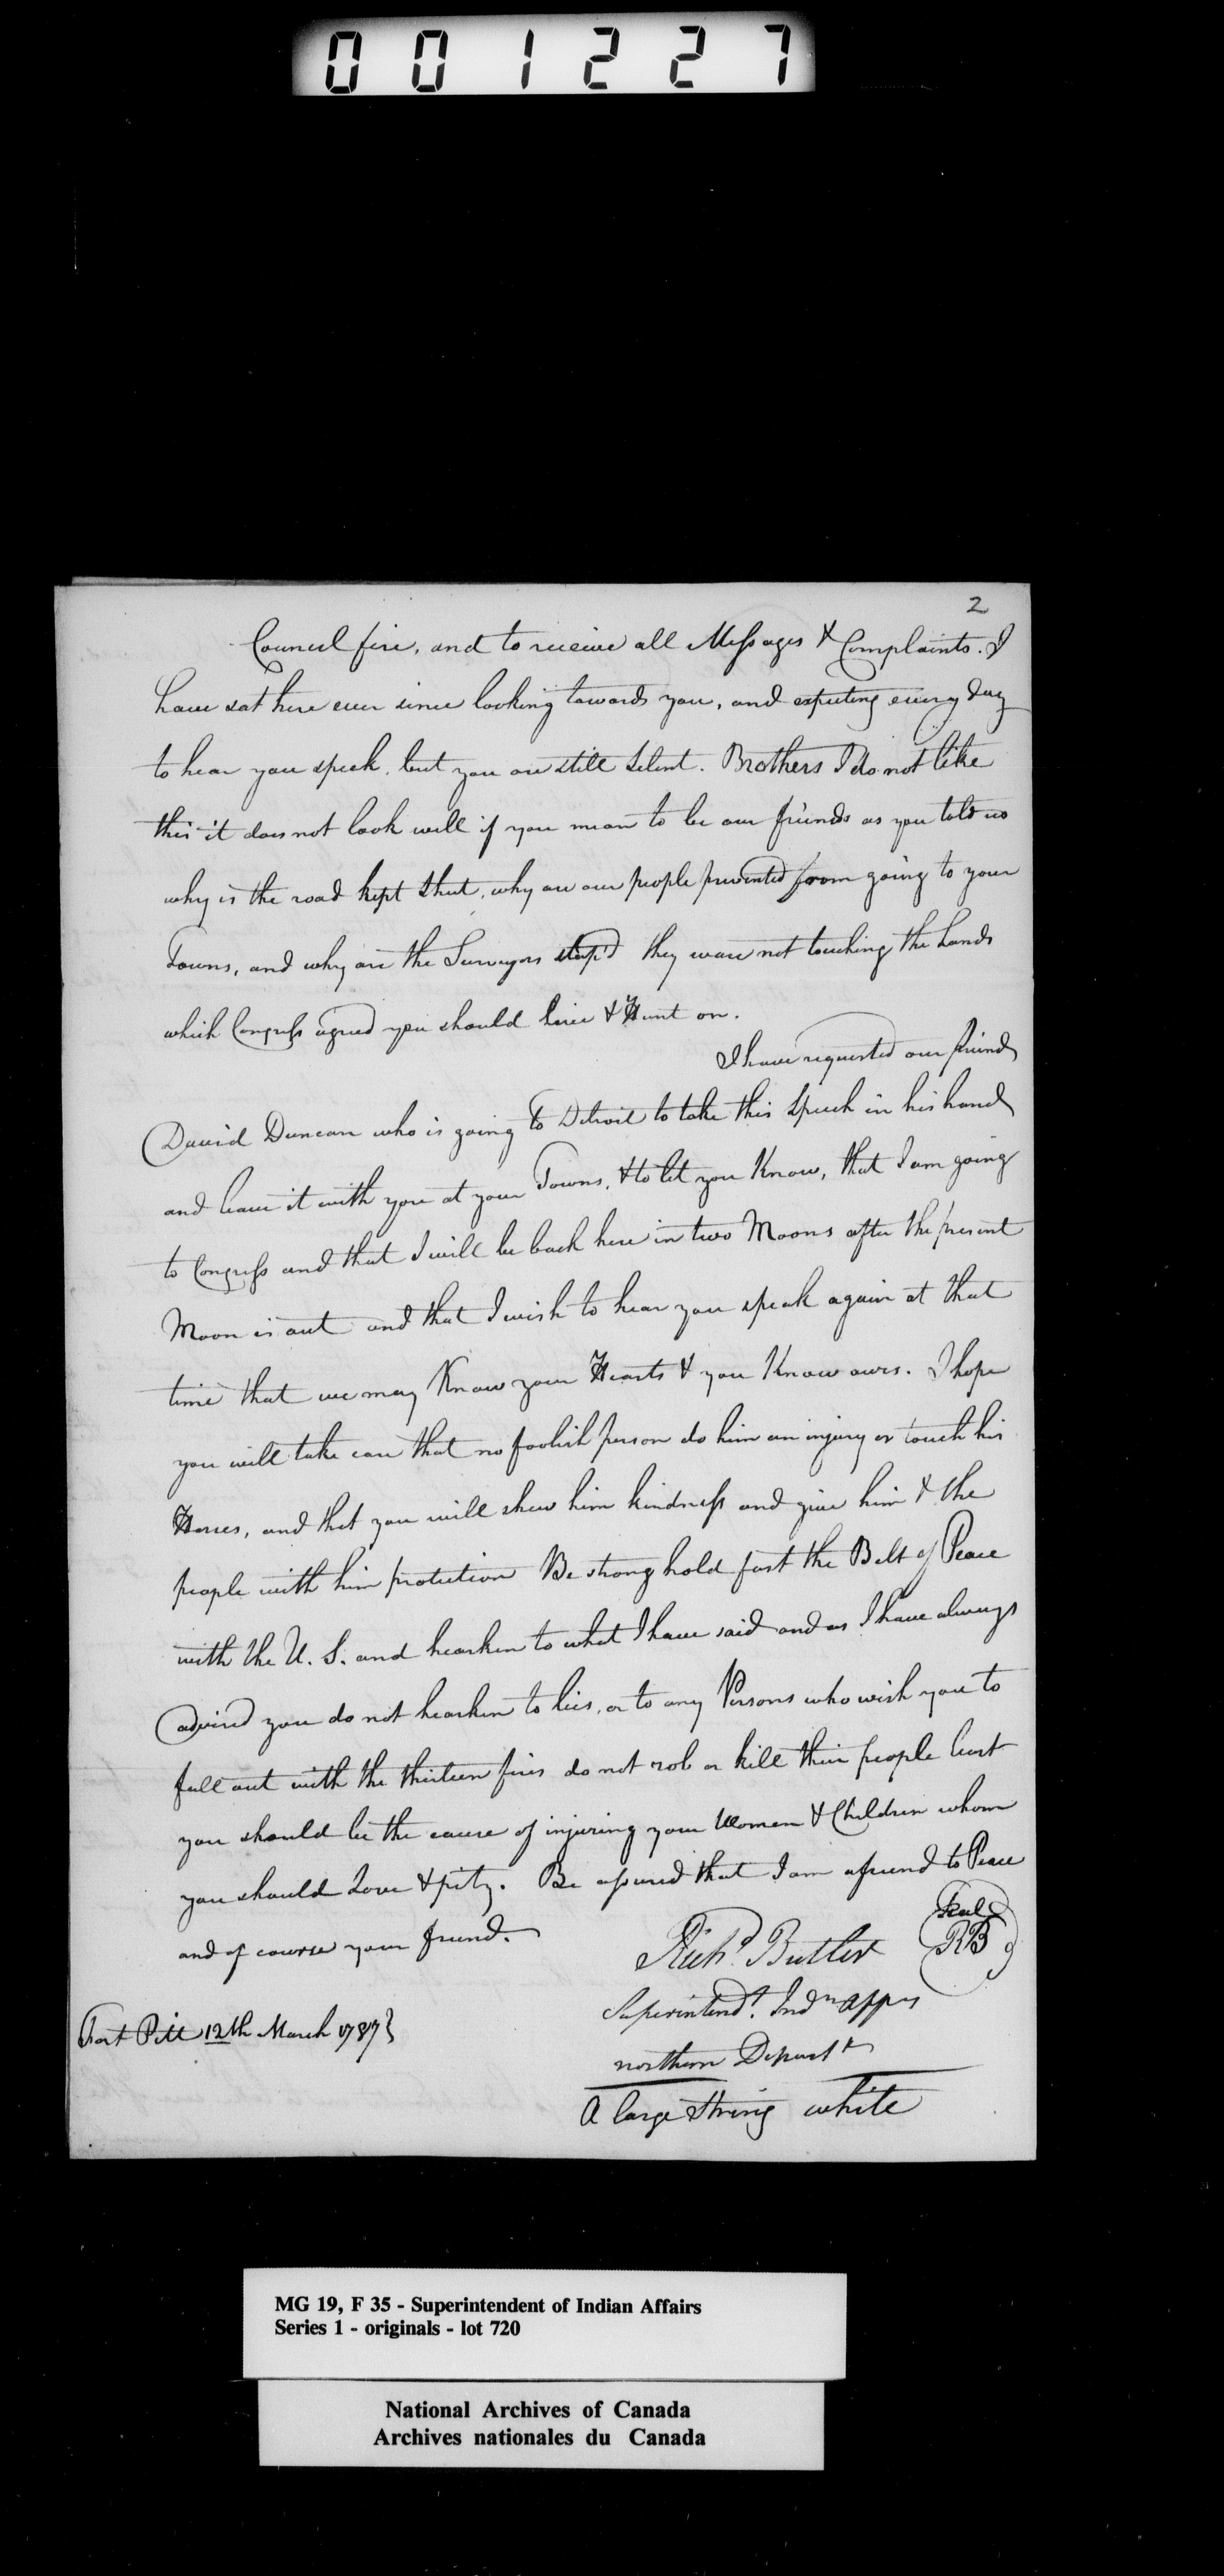 001227
2
Council fire, and to receive all Messages & Complaints. I
have sat here ever since looking towards you, and expecting every day
to hear you speek, but you are still Silent. Brothers I do not like
this it does not look well if you mean to be our friends as you told us
why is the road kept Shut, why are our people prevented from going to your
Towns, and why are the Surveyors stop'd they ware not touching the Lands
which Congress agreed you should live & Hunt on.
I have requested our friend
David Duncan who is going to Detroit to take this Speech in his hand
and leave it with you at your Towns, & to let you Know, that I am going
to Congress and that I will be back here in two Moons after the present
Moon is out and that I wish to hear you speak again at that
time that we may Know your Hearts & you Know ours. I hope
you will take care that no foolish person do him an injury or touch his
Horses, and that you will shew him kindness and give him & the
people with him protection Be strong hold fast the Belt of Peace
with the U. S. and hearken to what I have said and as I have always
advised you do not hearken to lies, or to any Persons who wish you to
fall out with the thirteen fires do not rob or kill their people least
you should be the cause of injuring your Women & Children whom
you should Love & pity. Be assured that I am a friend to Peace
and of course your friend.
Seal
RB
Richd. Butler
Superintendt. Indn affrs
northern Departt
Fort Pitt 12th March 1787}
A large String white
MG 19, F 35 - Superintendent of Indian Affairs
Series 1 - originals - lot 720
National Archives of Canada
Archives nationales du Canada